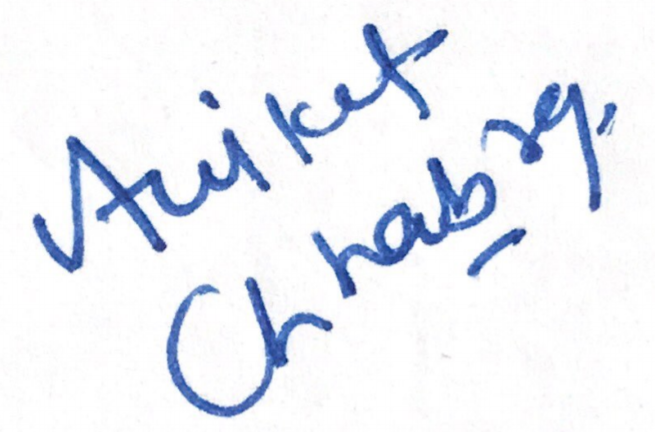 Aniket
Chhabra